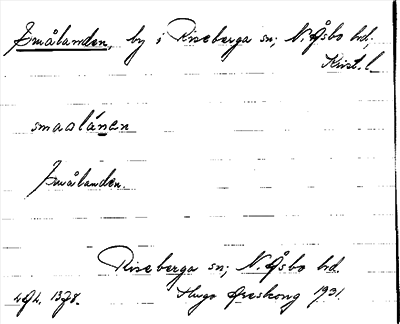 Smålanden, by i Riseberga sn; N. Åsbo hd,
Krist. l
smaalánen
Smålanden.
Riseberga sn; N. Åsbo hd.
Hugo Areskoug 1931.